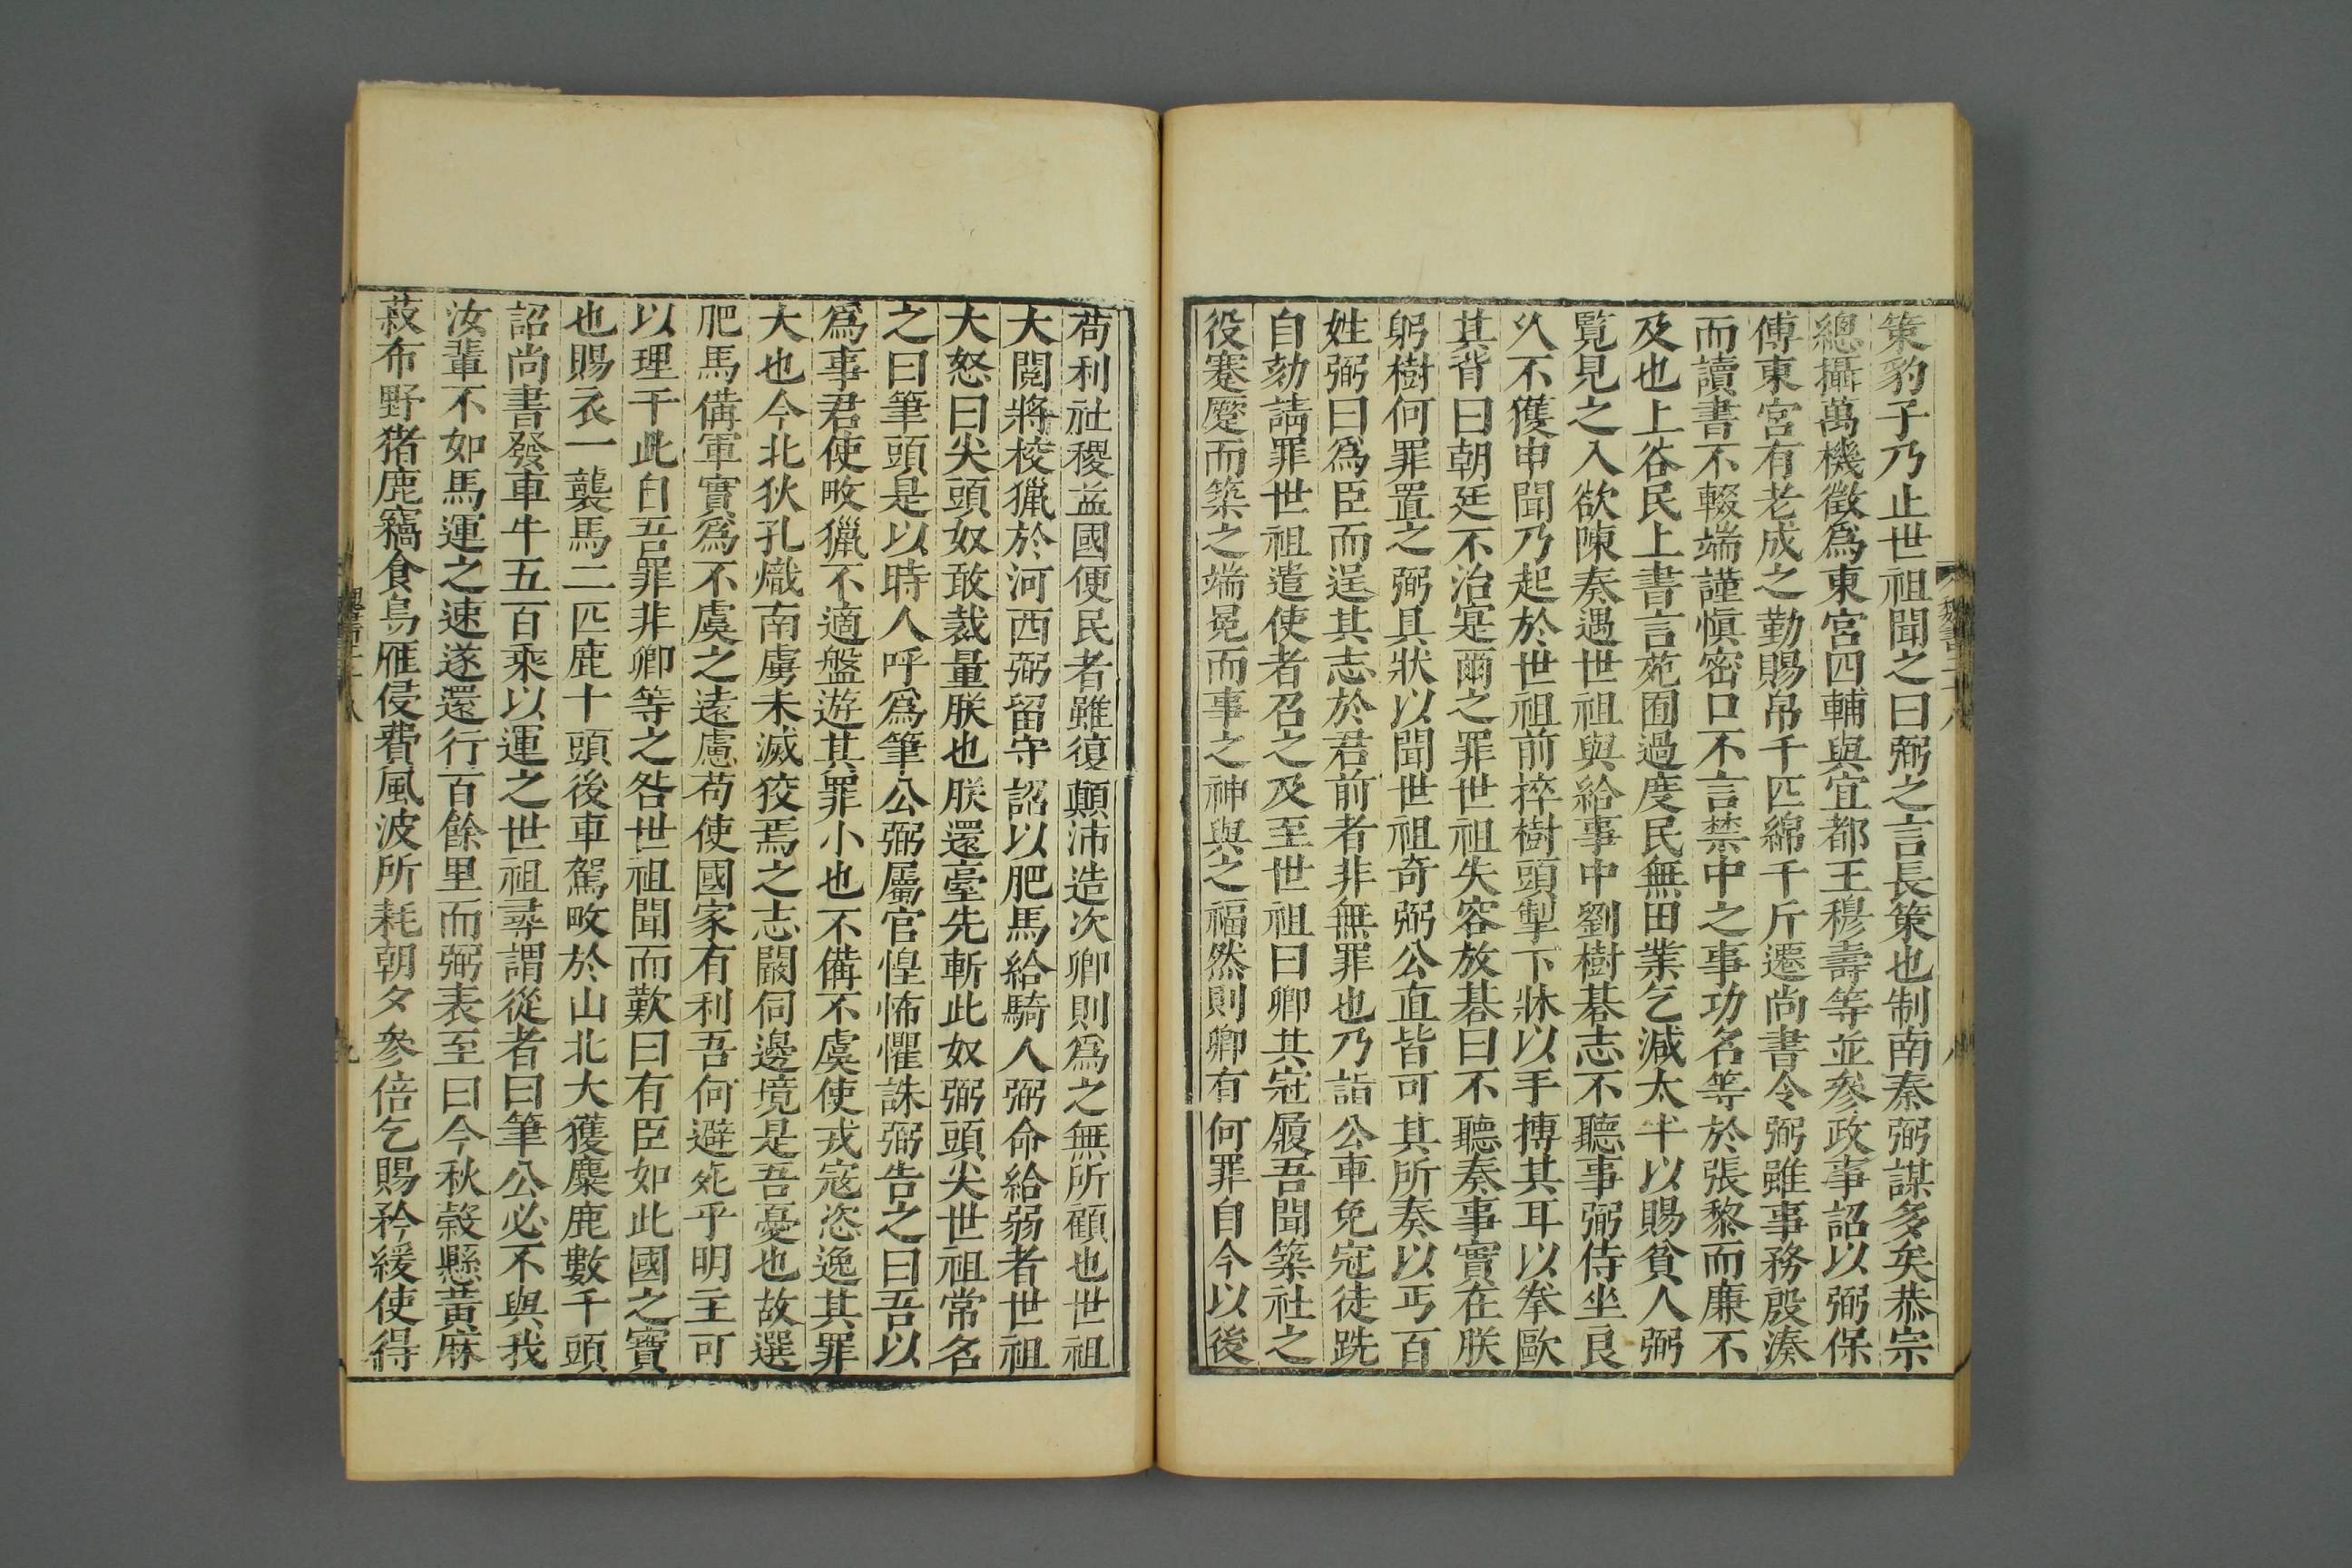 策豹子乃止世祖聞之曰弼之言長策也制南秦弼謀多矣恭宗
總攝萬機徵爲東宮四輔與宜都王穆壽等並參政事詔以弼保
傅東宮有老成之勤賜帛千匹綿千斤遷尚書令弼雖事務殷湊
而讀書不輟端謹慎密口不言禁中之事功名等於張黎而廉不
及也上谷民上書言苑囿過度民無田業乞減太半以賜貧人弼
覽見之入欲陳奏遇世祖與給事中劉樹碁志不聽事弼侍坐良
久不獲申聞乃起於世祖前捽樹頭掣下牀以手搏其耳以拳歐
其背曰朝廷不治寔爾之罪世祖失容放碁曰不聽奏事實在朕
躬樹何罪置之弼具狀以聞世祖奇弼公直皆可其所奏以丐百
姓弼曰爲臣而逞其志於君前者非無罪也乃詣公車免冠徒跣
自劾請罪世祖遣使者召之及至世祖曰卿其冠履吾聞築社之
役蹇蹷而築之端冕而事之神與之福然則卿有何罪自今以後
苟利社稷益國便民者雖復顛沛造次卿則爲之無所顧也世祖
大閱將校獵於河西弼留守詔以肥馬給騎人弼命給弱者世祖
大怒曰尖頭奴敢裁量朕也朕還臺先斬此奴弼頭尖世祖常名
之曰筆頭是以時人呼爲筆公弼屬官惶怖懼誅弼告之曰吾以
爲事君使畋獵不適盤遊其罪小也不備不虞使戎寇恣逸其罪
大也今北狄孔熾南虜未滅狡焉之志闚伺邊境是吾憂也故選
肥馬備軍實爲不虞之遠慮苟使國家有利吾何避死乎明主可
以理干此自吾罪非卿等之咎世祖聞而歎曰有臣如此國之寶
也賜衣一襲馬二匹鹿十頭後車駕畋於山北大獲麋鹿數千頭
詔尚書發車牛五百乘以運之世祖尋謂從者曰筆公必不與我
汝輩不如馬運之速遂還行百餘里而弼表至曰今秋穀懸黃麻
菽布野猪鹿竊食鳥雁侵費風波所耗朝夕參倍乞賜矜緩使得